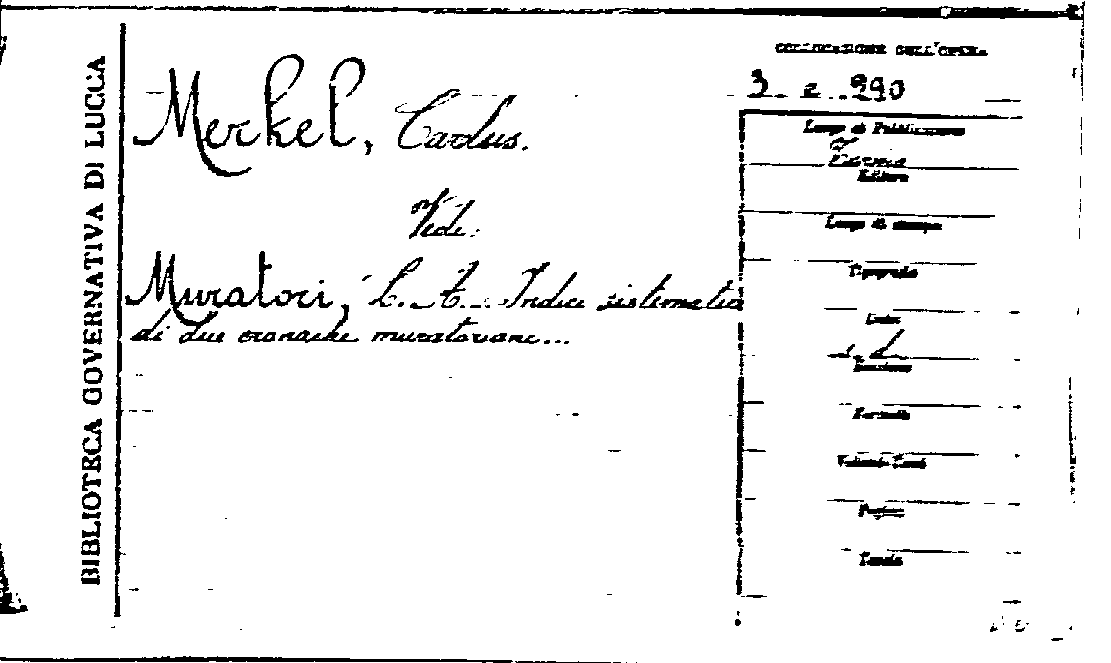 BIBLIOTECA GOVERNATIVA DI LUCCA
Merkel, Carlus.
Vedi:
Muratori, L. A. Indici sistematici
di due cronache muratoriane...
COLLOCAZIONE DELL'OPERA
3. 2. 290
Luogo di Pubblicazione
Editore
Luogo di stampa
Tipografia
s. d.
Formato
Pagine
Tavole